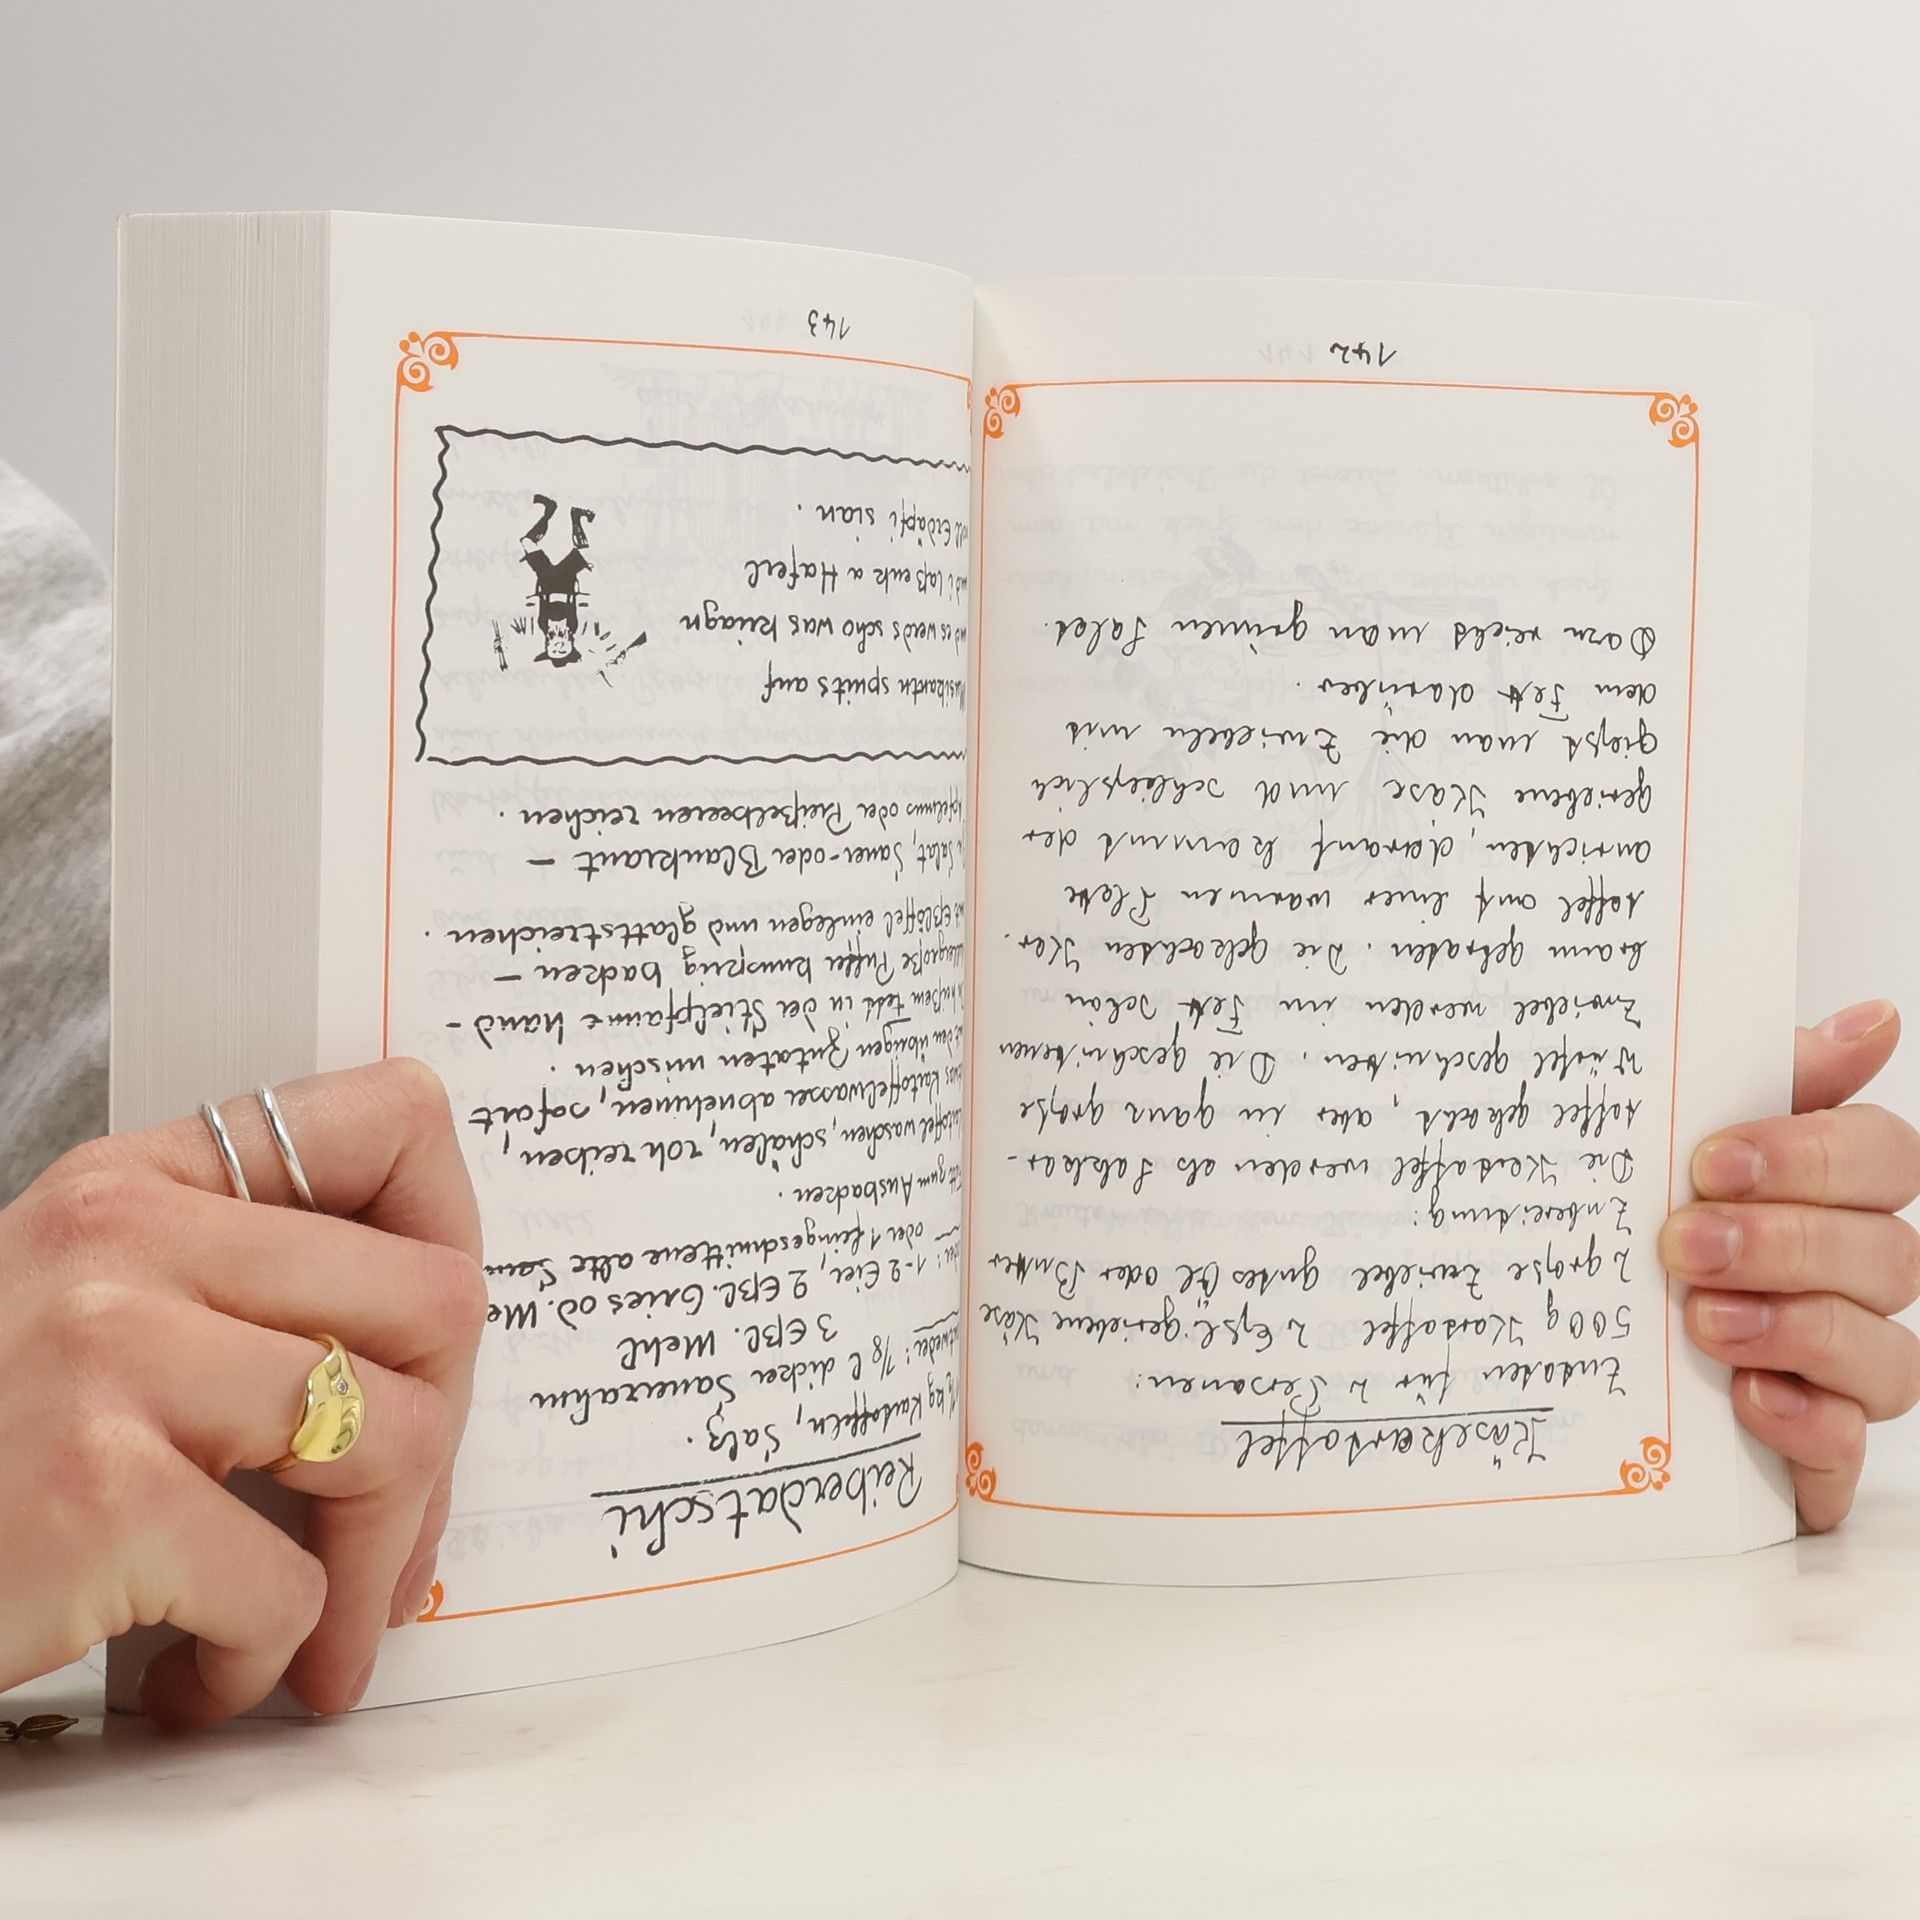 Käsekartoffel
Zutaten für 2 Personen:
500 g Kartoffel 2 Eßl. geriebene Käse
2 große Zwiebel gutes Öl oder Butter
Zubereitung:
Die Kartoffel werden als Salzkar-
toffel gekocht, aber in ganz große
Würfel geschnitten. Die geschnittenen
Zwiebel werden in Fett schön
braun gebraten. Die gekochten Kar-
toffel auf einer warmen Platte
anrichten, darauf kommt der
geriebene Käse und schließlich
gießt man die Zwiebeln mit
dem Fett darüber.
Dazu reicht man grünen Salat.
142
Reiberdatschi
kg Kartoffeln, Salz.
1/8 l dicker Sauerrahm
3 Eßl. Mehl
1-2 Eier, 2 Eßl. Gries od. Me
oder 1 feingeschnittene alte Sem
zum Ausbacken.
waschen, schälen, roh reiben,
Kartoffelwasser abnehmen, sofort
den übrigen Zutaten mischen.
heißem Fett in der Stielpfanne hand-
Puffer knusprig backen –
Eßlöffel einlegen und glattstreichen.
Salat, Sauer- oder Blaukraut –
oder Preißelbeeren reichen.
Musikantn spuits auf
es weids scho was kriagn
i laß enk a Haferl
Erdäpfi sian.
143